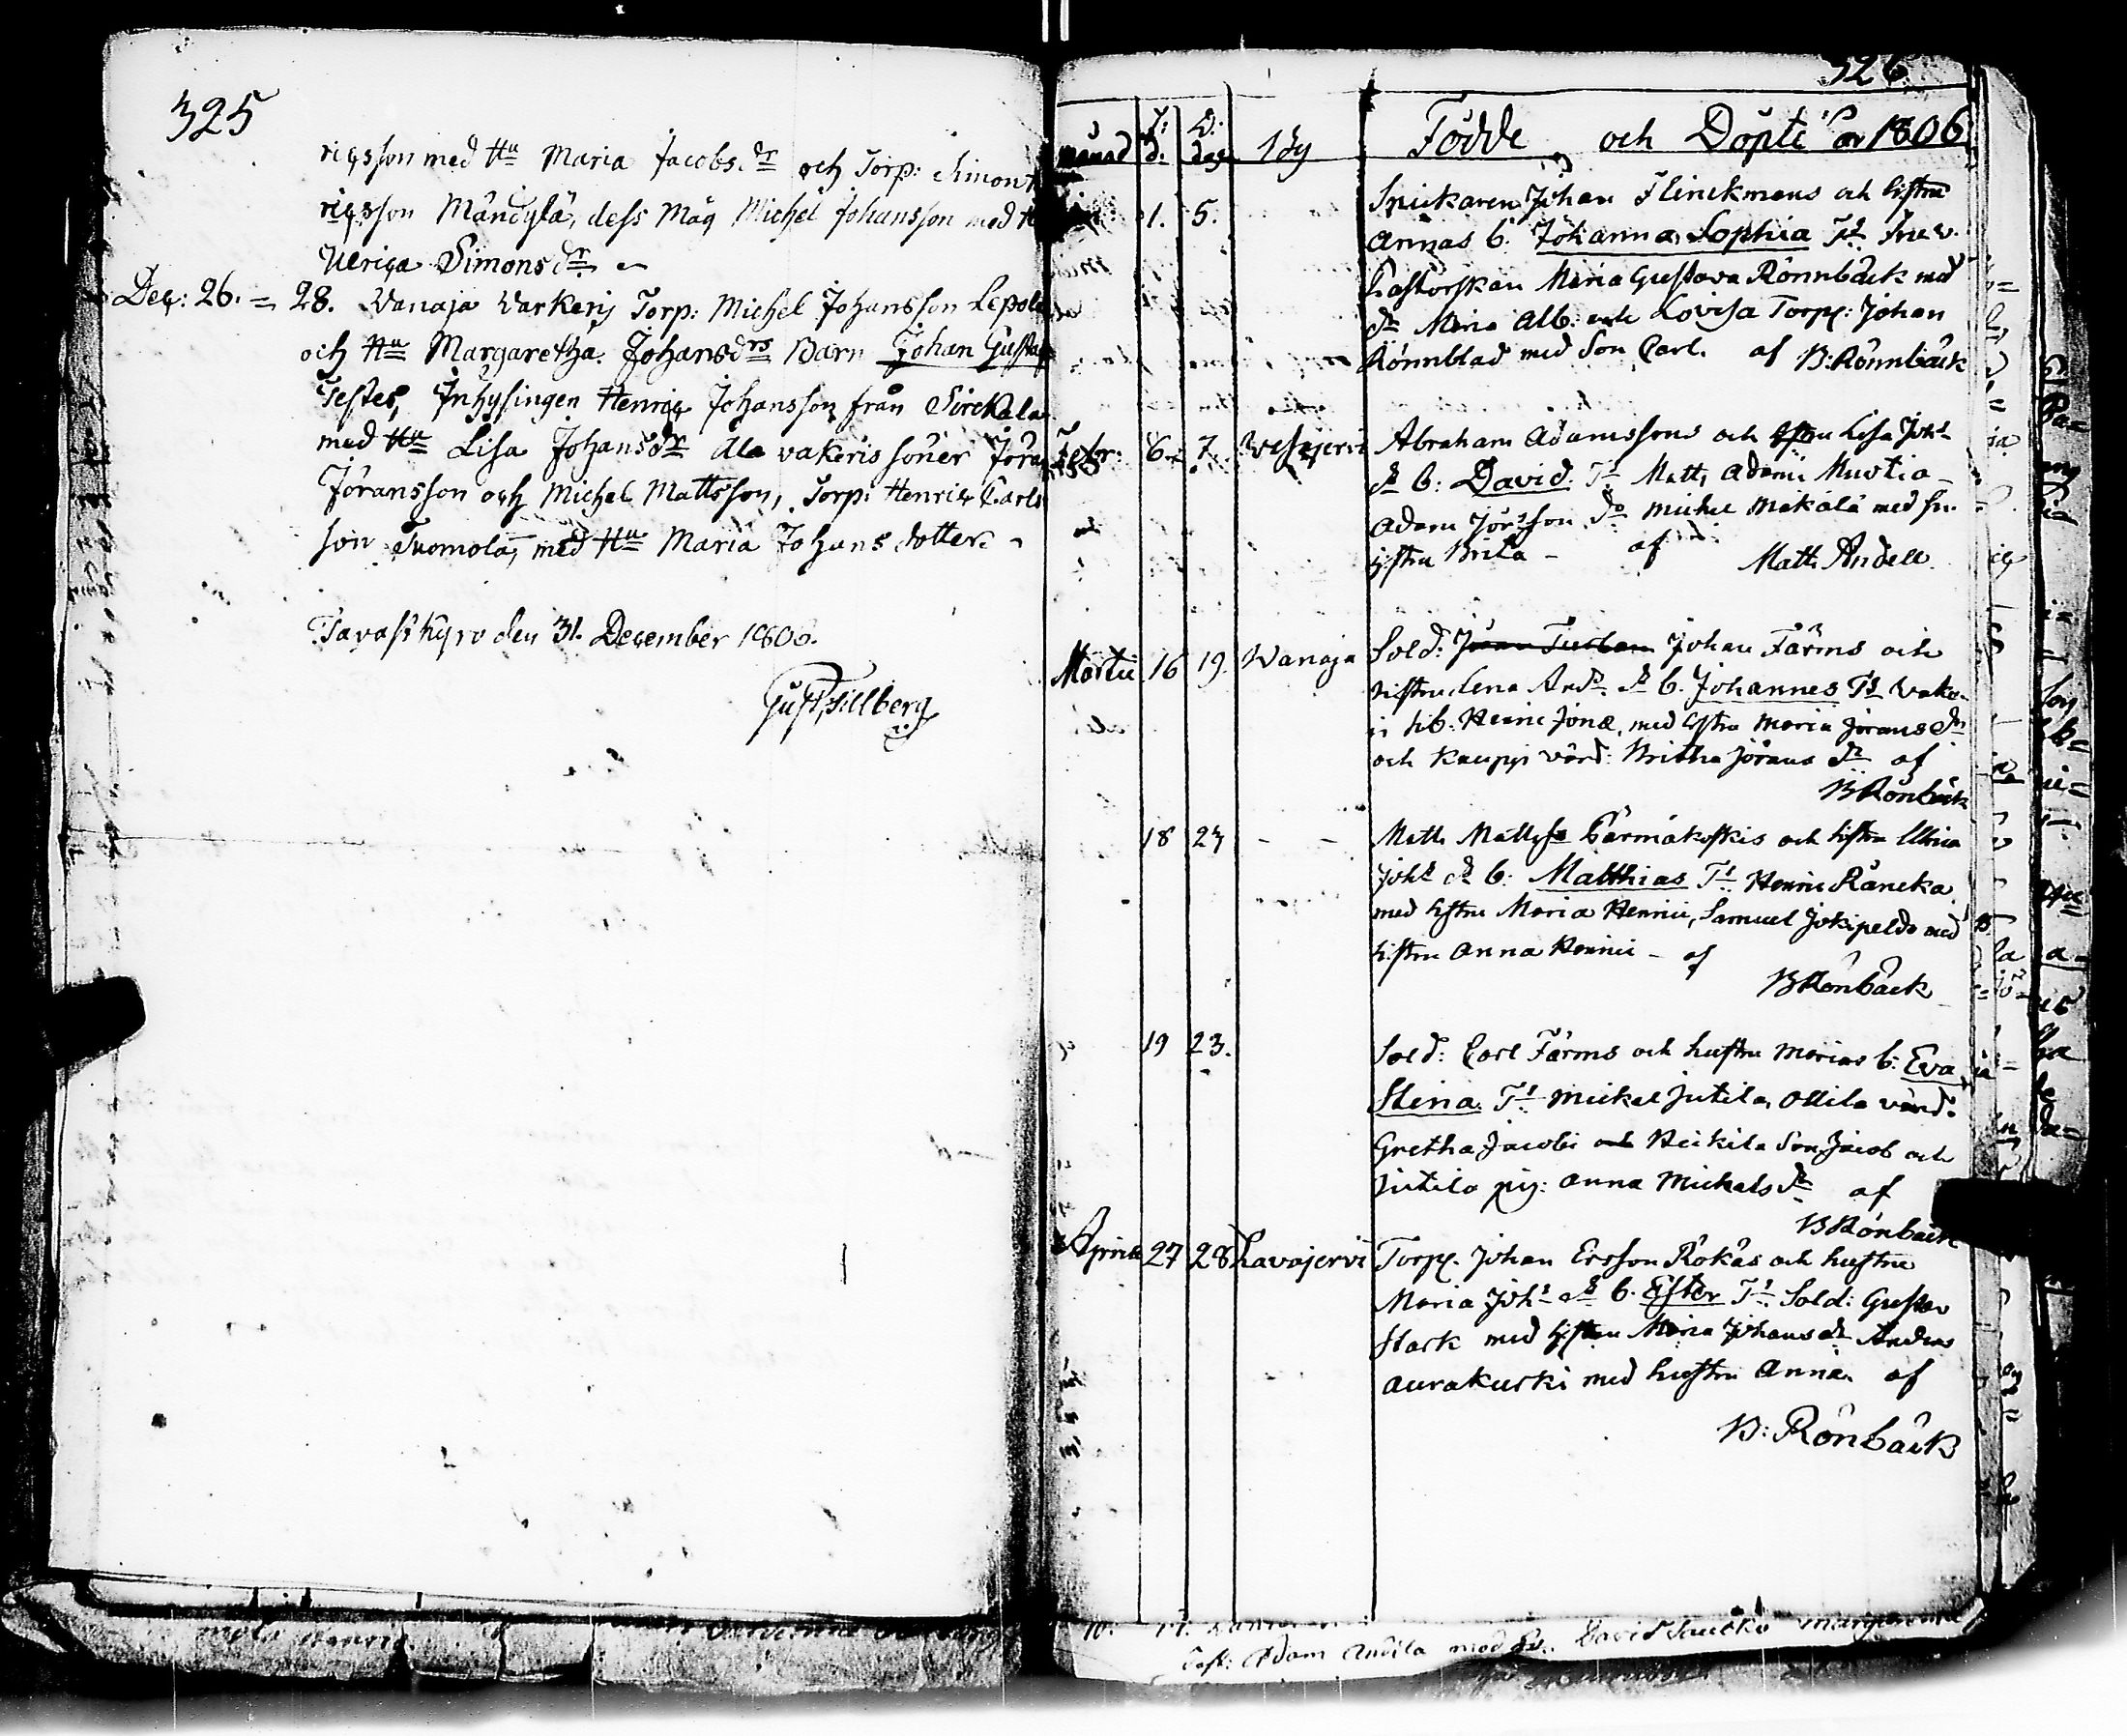 325
ricsson med Hu Maria Jacobsdr och Torp: Simon
ricsson Mändylä, dess Måg Michel Johansson med
Ulrica Simonsdr
Dec: 26. = 28. Vanaja Varkerj Torp: Michel Johansson Lepola
och Hu Margaretha Johansdrs Barn Johan Gustaf
Testes, Inhysingen Henric Johansson från Sirckala
med Hu Lisa Johansdr Ala vakeris söner Jöran
Jöransson och Michel Mattsson, Torp: Henric Carls
son Tuomola, med Hu Maria Johans dotter
Tavastkyro den 31. December 1806.
Gust. Tillberg
326
månad d: dag By Födde och Döpte år 1806
1. 5. Snickaren Johan Flinckmans och histru
Annas b. Johanna Sophia Ts
Pastorskan Maria Gustava Rönnbäck med
dr Maria Alb: och Lovisa Torp: Johan
Rönnblad med Son Carl. af B: Rönnbäck
Febr: 6. 7. Vesajervi Abraham Adamssons och hstru Lisa Johs
dr b: David. Ts Matts Adami Mustia
Adam Jörsson do Michel Mäkälä med
hstru Brita - af Matts Andell.
Martii 16 19. Wanaja Sold: Johan Färms och
histru Lena Andr. dr b. Johannes Ts Vake
ri hb: Henric Jonæ, med hstru Maria Jörans dr
och Kauppi värd: Britha Jörans dr af
B Rönbäck
18 24 - - Matts Matts Pärmäkoskis och histru Ulrica
Johs dr b: Matthias Ts Henric Räncka
med histru Maria Henrici, Samuel Jokipeldo med
histru Anna Henrici - af
B Rönbäck
19 23. Sold: Carl Färms och hustru Marias b: Eva
Stina. Ts Mickel Jutila, Ollila värd:
Gretha Jacobi och Heikila Son Jacob och
Jutila pig: Anna Mickelsdr af
B Rönbäck
Aprill 27 28 Lavajervi Torp. Johan Ersson Rökäs och hustru
Maria Johs dr b. Ester Ts Sold: Gustav
Stark med hstru Maria Johans dr Anders
Aurakurki med hustru Anna af
B: Rönbäck
Test: Adam Andila med